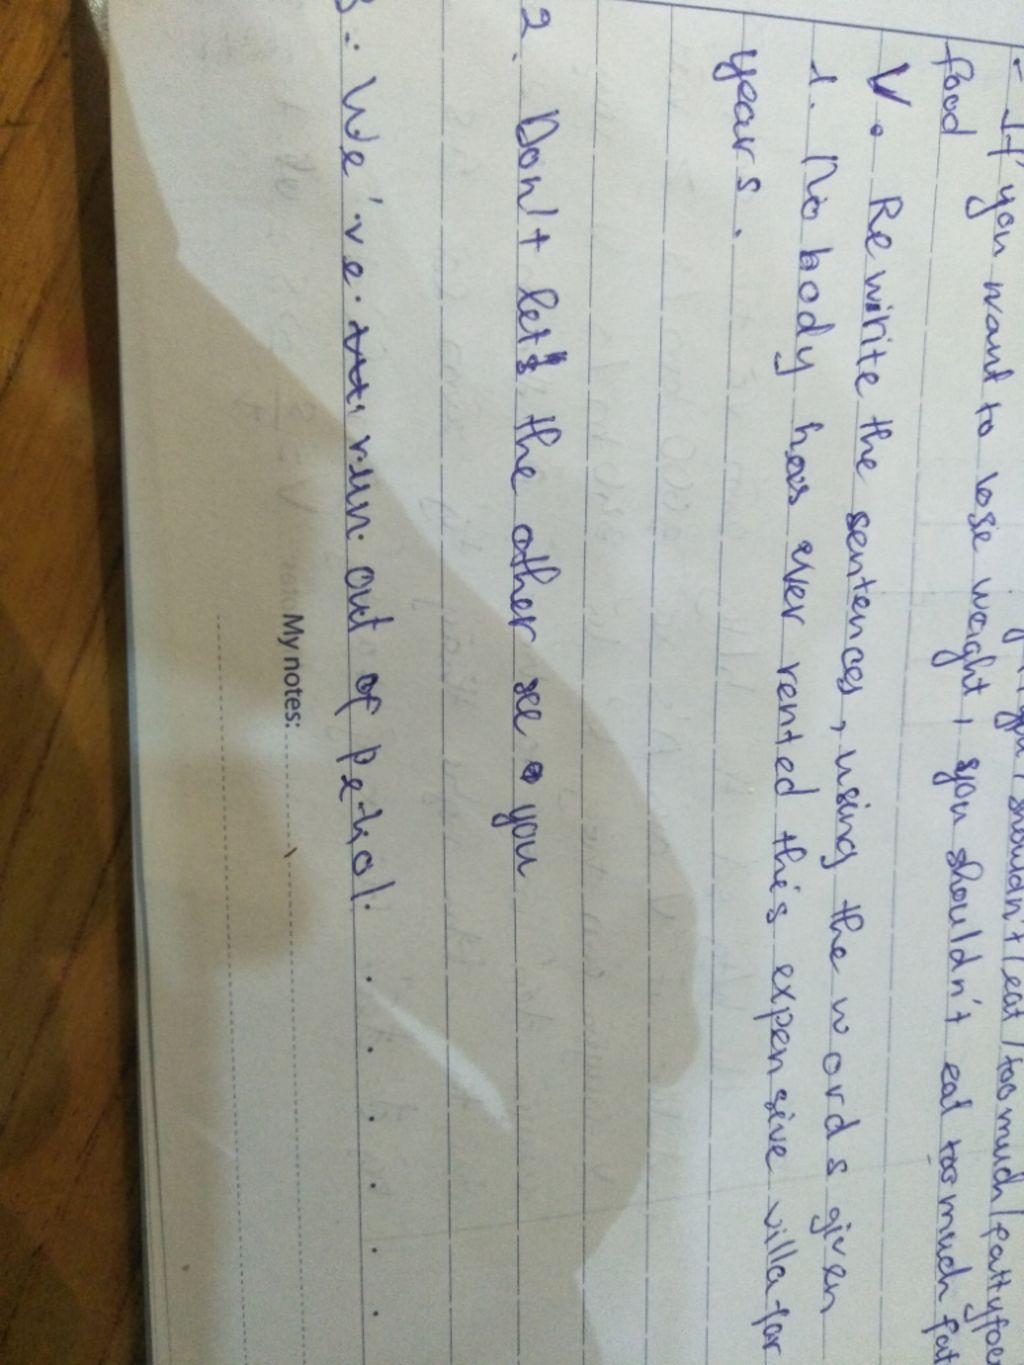 - If you want to lose weight, you shouldn't eat too much fat
food
V. Rewirite the sentences, using the words given
1. Nobody has ever rented this expensive villa for
years.
2. Don't let's the other see you
3. We've run out of petrol.
My notes: